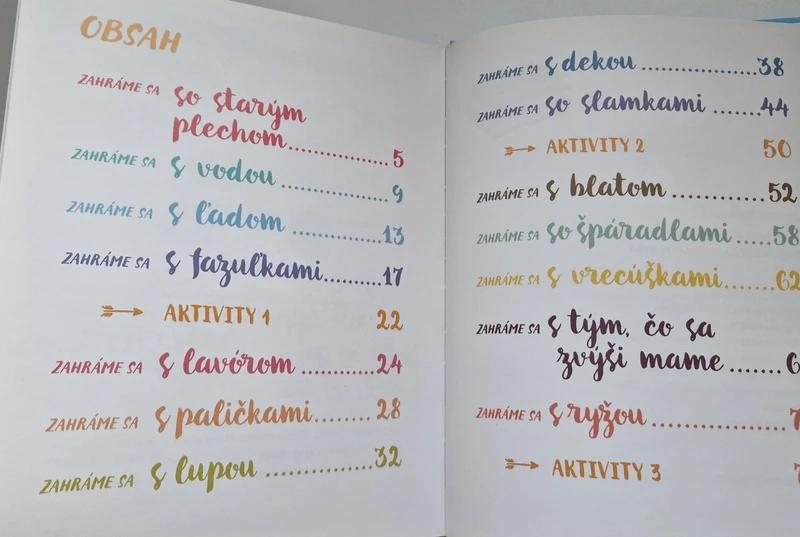 OBSAH
ZAHRÁME SA so starým
plechom................5
ZAHRÁME SA s vodou................9
ZAHRÁME SA s ľadom..............13
ZAHRÁME SA s fazuľkami............17
AKTIVITY 1 22
ZAHRÁME SA s lavórom............24
ZAHRÁME SA s paličkami..........28
ZAHRÁME SA s lupou................32
ZAHRÁME SA s dekou................38
ZAHRÁME SA so slamkami..........44
AKTIVITY 2 50
ZAHRÁME SA s blatom............52
ZAHRÁME SA so špáradlami.....58
ZAHRÁME SA s vrecúškami.......62
ZAHRÁME SA s tým, čo sa
zvýši mame.......
ZAHRÁME SA s ryžou..................
AKTIVITY 3